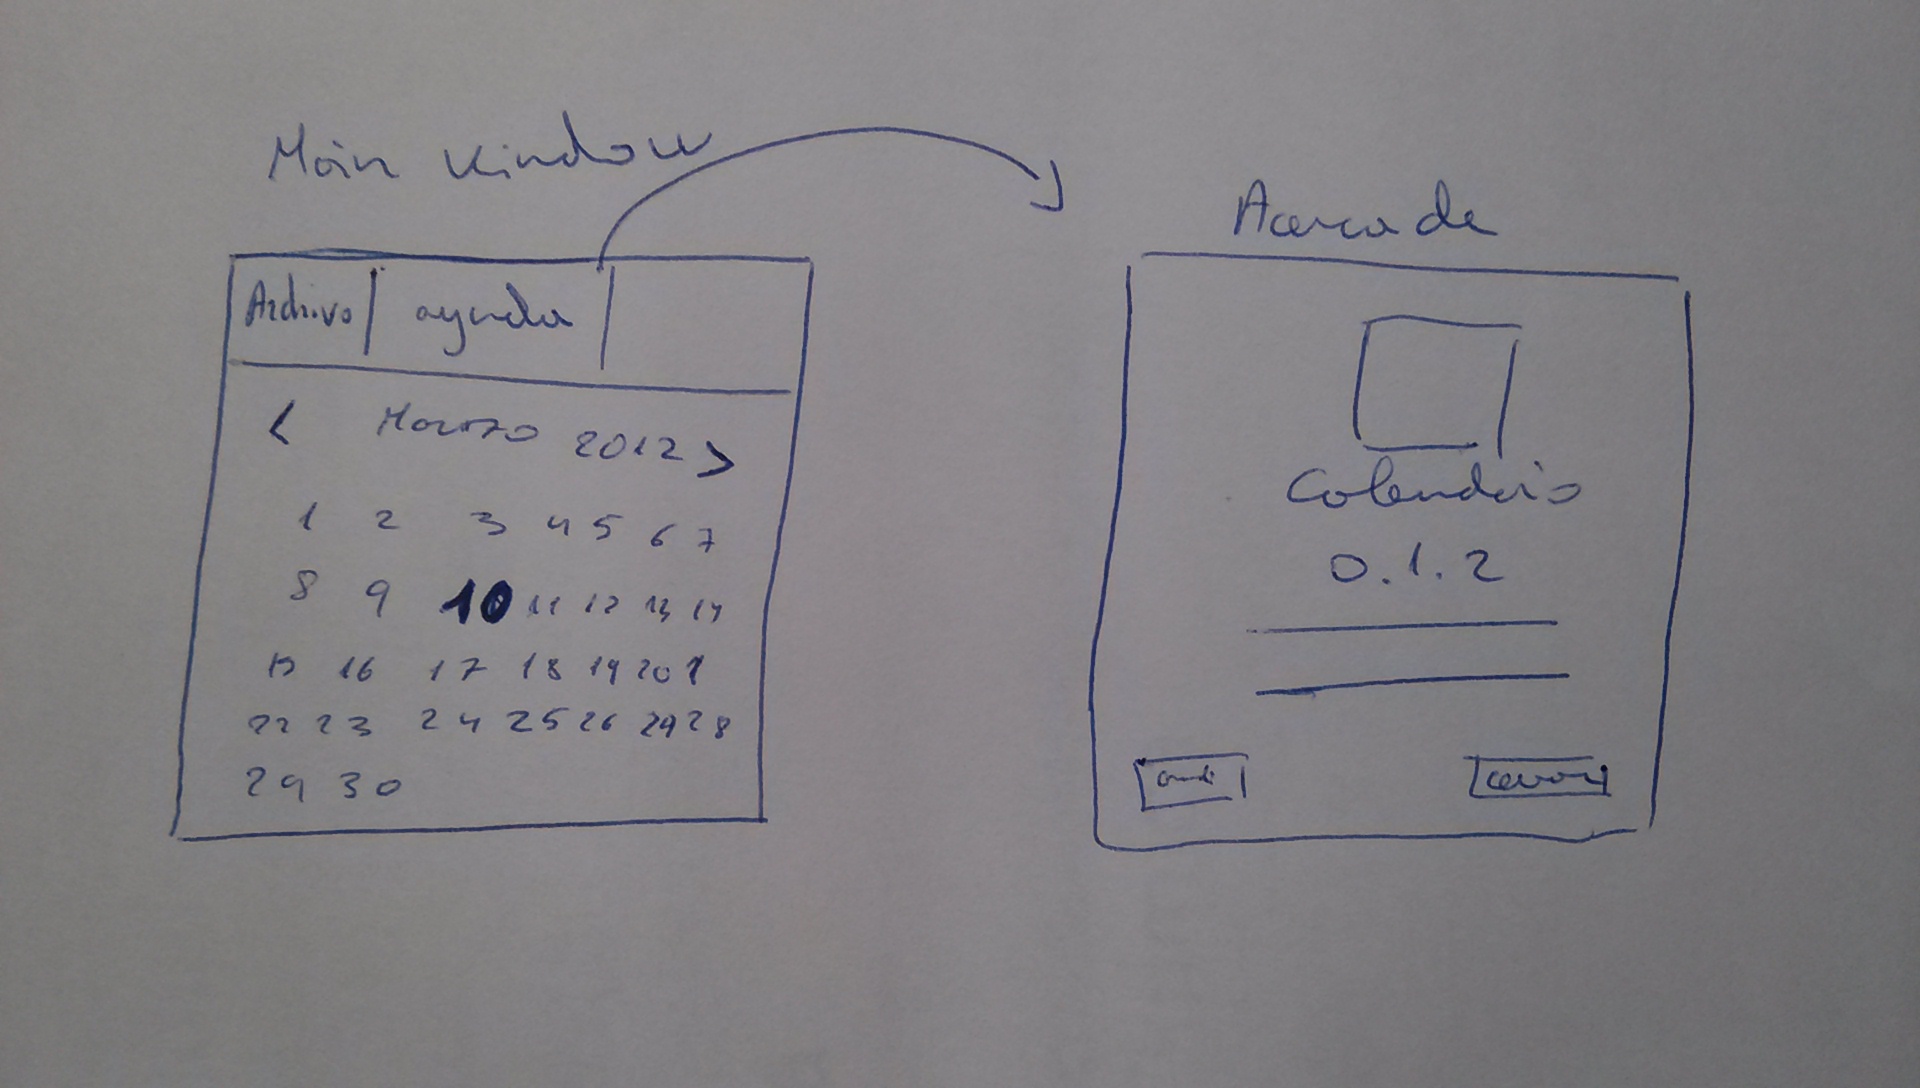 Main window
Archivo ayuda
< Marzo 2012 >
1 2 3 4 5 6 7
8 9 10 11 12 13 14
15 16 17 18 19 20
22 23 24 25 26 29 28
29 30
Acerca de
Calendario
0.1.2